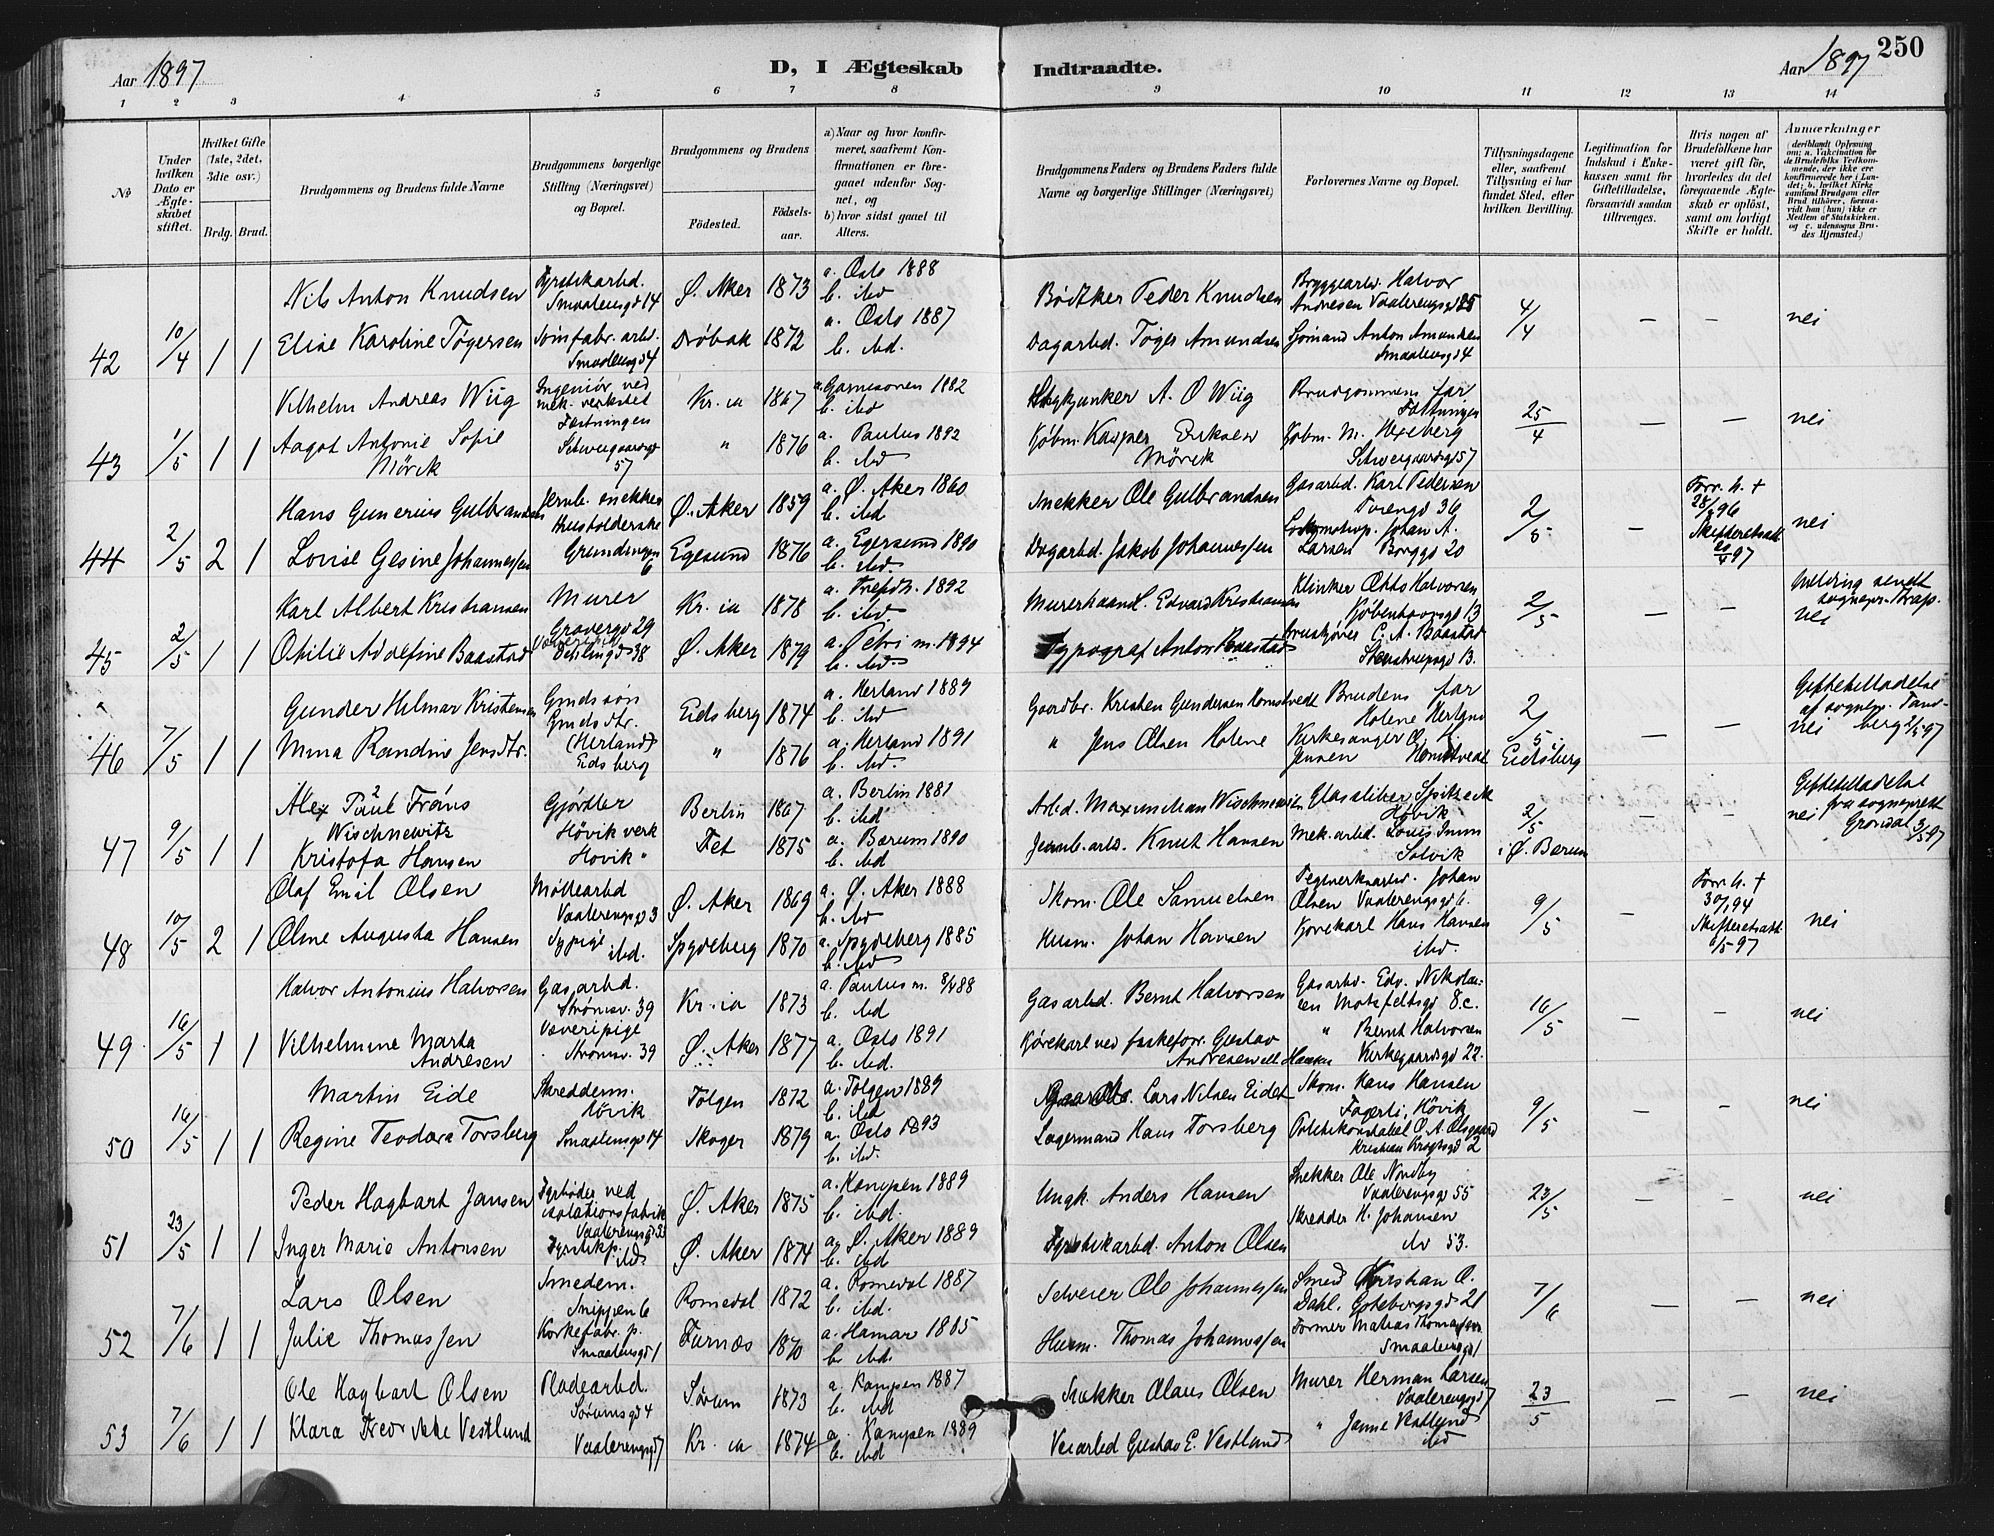 Aar 1897
D, I Ægteskab Indtraadte.
Aar 1897
250
1 2 3 4 5 6 7 8 9 10 11 12 13 14
№
Under hvilken Dato er Ægteskabet stiftet.
Hvilket Gifte (1ste, 2det, 3die osv.)
Brdg. Brud.
Brudgommens og Brudens fulde Navne
Brudgommens borgerlige Stilling (Næringsvei) og Bopæl.
Brudgommens og Brudens
Fødested.
Fødselsaar.
a) Naar og hvor konfirmeret, saafremt Konfirmationen er foregaaet udenfor Sognet, og
b) hvor sidst gaaet til Alters.
Brudgommens Faders og Brudens Faders fulde Navne og borgerlige Stillinger (Næringsvei)
Forlovernes Navne og Bopæl.
Tillysningsdagene eller, saafremt Tillysning ei har fundet Sted, efter hvilken Bevilling.
Legitimation for Indskud i Enkekassen samt for Giftetilladelse, forsaavidt saadan tiltrænges.
Hvis nogen af Brudefolkene har været gift før, hvorledes da det foregaaende Ægteskab er opløst, samt om lovligt Skifte er holdt.
Anmærkninger
(deriblandt Oplysning om: a. Vakcination for de Brudefolks Vedkommende, der ikke ere konfirmerede her i Landet; b. hvilket Kirkesamfund Brudgom eller Brud tilhører, forsaavidt han (hun) ikke er Medlem af Statskirken. og c. udensogns Brudes Hjemsted.)
Nils Anton Knudsen Smaalensgd 14 Ø. Aker 1873 a. Oslo 1888 b. ibd Bødtker Peder Knudsen Bryggearb. Halvor Andresen Vaalerengsgd 25
42 10/4 1 1 Eline Karoline Tøgersen Smaalensgd 4 Drøbak 1872 a. Oslo 1887 b. ibd. Dagarbd. Tøger Amundsen Sjømand Anton Amundsen Smaalensgd 4 4/4 — — nei
Vilhelm Andreas Wiig Ingeniør ved mek. verksted Fæstningen Kr.ia 1867 a. Garnisonen 1882 b. ibd A. O Wiig Brudgommens far Fæstningen
43 1/5 1 1 Aagot Antonie Sofie Mørck Schweigaardsgd 57 " 1876 a. Paulus 1892 b. ibd Kjøbm. Kasper Eriksen Mørck Kjøbm. M. Hexeberg Schweigaardsgd 57 25/4 — — nei
Hans Gunerius Gulbrandsen Jernb. snekker Ø. Aker 1859 a. Ø. Aker 1860 b. ibd Snekker Ole Gulbrandsen Gasarbd. Karl Pedersen Turengd 36
44 2/5 2 1 Lovise Gesine Johannessen Husholderske Grundingen 6 Egesund 1876 a. Egersund 1890 b. ibd. Dagarbd. Jakob Johannessen Lokomotivp. Johan A. Larsen Borggd 20 2/5 — Forr. h. † 28/ 96 Skifteretsatt. /4 97 nei
Karl Albert Kristiansen Murer Gravergd 29 Kr.ia 1878 a. Trefdh. 1892 b. ibd. Murerhaandl. Edvard Kristiansen Klinker Otto Halvorsen Kjøbenhavnsgd 13
45 2/5 1 1 Otilie Adolfine Baastad 38 Ø. Aker 1879 a. Petri m. 1894 b. ibd. Typograf Anton Baastad C. A. Baastad Stenstrupsgd 13. 2/5 — — Melding sendt sognepr. nei
Gunder Hilmar Kristensen Gmdssøn Eidsberg 1874 a. Herland 1889 b. ibd Gaardbr. Kristen Gundersen Homstvedt Brudens far Holene Herland
46 7/5 1 1 Mina Randine Jensdtr. Gmdsdtr. (Herland) Eidsberg " 1876 a. Herland 1891 b. ibd. " Jens Olsen Holene Kirkesanger O. H. Jensen Homstvedt 2/5 i Eidsberg — — Giftetilladelse af sognepr. nei
Alex Paul Frans Wischnewitz Gjørtler Høvik verk Berlin 1867 a. Berlin 1881 b. ibd Arbd. Maximilian Wischnewitz Glassliber Spitzeck Høvik
47 9/5 1 1 Kristofa Hansen Høvik " Fet 1875 a. Bærum 1890 b. ibd Jernb. arb. Knut Hansen Mek. arbd. Louis Imm Solvik 2/5 i Ø. Bærum — — Giftetilladelse fra sogneprest nei
Olaf Emil Olsen Møllearbd Vaalerengsgd 3 Ø. Aker 1869 a. Ø. Aker 1888 b. ibd Skom. Ole Samuelsen Teglverksarbd. Johan Olsen Vaalerengsgd 6.
48 10/5 2 1 Oline Augusta Hansen Sypige ibd. Spydeberg 1870 a. Spydeberg 1885 b. ibd Husm. Johan Hansen Kjørekarl Hans Hansen ibd. 9/5 — Forr. h. † 30/ 94 Skifteretsatt. /5 97 nei
Halvor Antonius Halvorsen Gasarbd. Strømsv. 39 Kr.ia 1873 a. Paulus m. 88 b. ibd Gasarbd. Bernt Halvorsen Gasarbd. Edv. Nikolaisen Motzfeltsgd 8c.
49. 16/5 1 1 Vilhelmine Marta Andresen Væveripige Strømsv. 39 Ø. Aker 1877 a. Oslo 1891 b. ibd. Kjørekarl ved fiskeforr. Gustav Andresen ell. Hansen " Bernt Halvorsen Kirkegaardsgd 22. 16/5 — — nei
Martin Eide Skredderm. Høvik Tolgen 1872 a. Tolgen 1889 b. ibd Lars Nilsen Eidet Skom. Hans Hansen Fagerli, Høvik
50 16/5 1 1 Regine Teodora Torsberg Smaalensgd 14 Skoger 1879 a. Oslo 1893 b. ibd. Lagermand Hans Torsberg Politikonstabel O. A. Kristian Krogtsgd 2 9/5 — — nei
Peder Hagbart Jansen Fyrbøder ved isolationsfabrik Vaalerengsgd Ø. Aker 1875 a. Kampen 1889 b. ibd. Ungk. Anders Hansen Snekker Ole Nordby Vaalerengsgd 55
51 23/5 1 1 Inger Marie Antonsen ibd Ø. Aker 1874 a. Ø. Aker 1889 b. ibd Fyrstikarbd. Anton Olsen Skredder H. Johansen ibd 53. 23/5 — — nei
Lars Olsen Smedem. Snippen 6 Romedal 1872 a. Romedal 1887 b. ibd. Selveier Ole Johannessen Smed Kristian O. Dahl. Gøteborgsgd 21
52 7/6 1 1 Julie Thomassen Korkefabr. p. Smaalensgd 1 Furnæs 1870 a. Hamar 1885 b. ibd. Husm. Thomas Johannessen Former Matias Thomassen Smaalensgd 1 7/6 — — nei
Ole Hagbart Olsen Pladearbd. Sørumsgd 4 Sørum 1873 a. Kampen 1887 b. ibd Snekker Olaus Olsen Murer Herman Larsen Vaalerengsgd 7
53 7/6 1 1 Klara Fredrikke Vestlund Vaalerengsgd 7 Kr.ia 1874 a. Kampen 1889 b. ibd Veiarbd Gustav E. Vestlund " Janne Vestlund ibd 23/5 — — nei